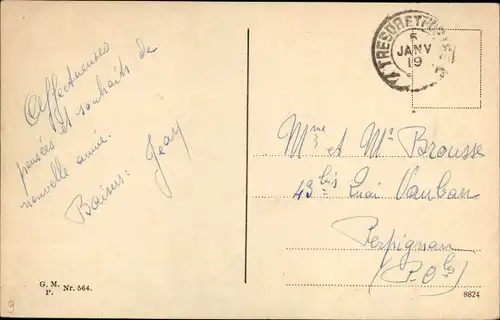 Affectueuses
pensées et souhaits de
nouvelle année.
Baisers: Jean
TRESOR ET POSTES
5
JANV
19
Mme et Mr Brousse
43bis Quai Vauban
Perpignan
(P. Oles)
G. M.
P. Nr. 564.
8824
9